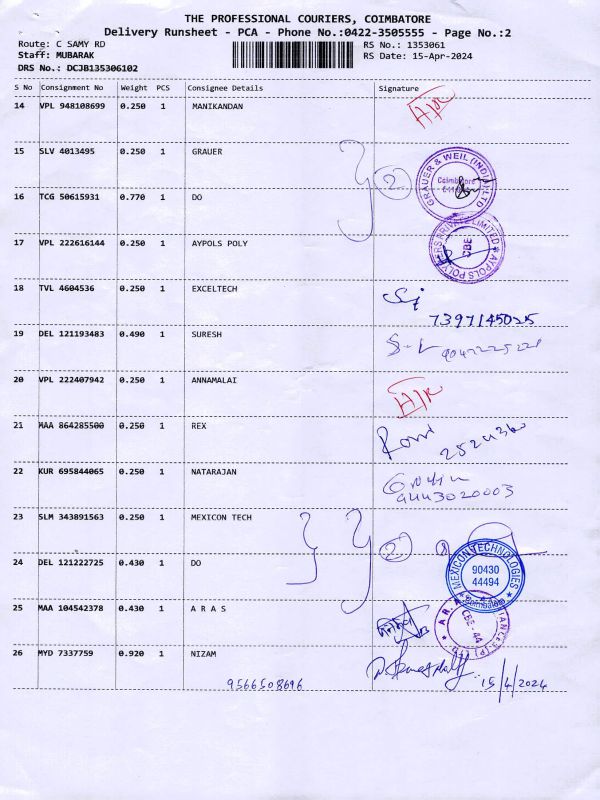 THE PROFESSIONAL COURIERS, COIMBATORE
Delivery Runsheet - PCA - Phone No.:0422-3505555 - Page No.:2
Route: C SAMY RD RS No.: 1353061
Staff: MUBARAK RS Date: 15-Apr-2024
DRS No.: DCJB135306102
S No Consignment No Weight PCS Consignee Details Signature
14 VPL 948108699 0.250 1 MANIKANDAN
15 SLV 4013495 0.250 1 GRAUER
2
GRAUER & WEIL (INDIA) LTD
Coimbatore
16 TCG 50615931 0.770 1 DO
17 VPL 222616144 0.250 1 AYPOLS POLY
AYPOLS POLYMERS PRIVATE LIMITED
CBE
18 TVL 4604536 0.250 1 EXCELTECH
7397145025
19 DEL 121193483 0.490 1 SURESH
20 VPL 222407942 0.250 1 ANNAMALAI
21 MAA 864285500 0.250 1 REX
22 KUR 695844065 0.250 1 NATARAJAN
9443020003
23 SLM 343891563 0.250 1 MEXICON TECH
2
MEXICON TECHNOLOGIES
90430
44494
24 DEL 121222725 0.430 1 DO
25 MAA 104542378 0.430 1 A R A S
CBE - 44
26 MYD 7337759 0.920 1 NIZAM
9566508696 15/4/2024